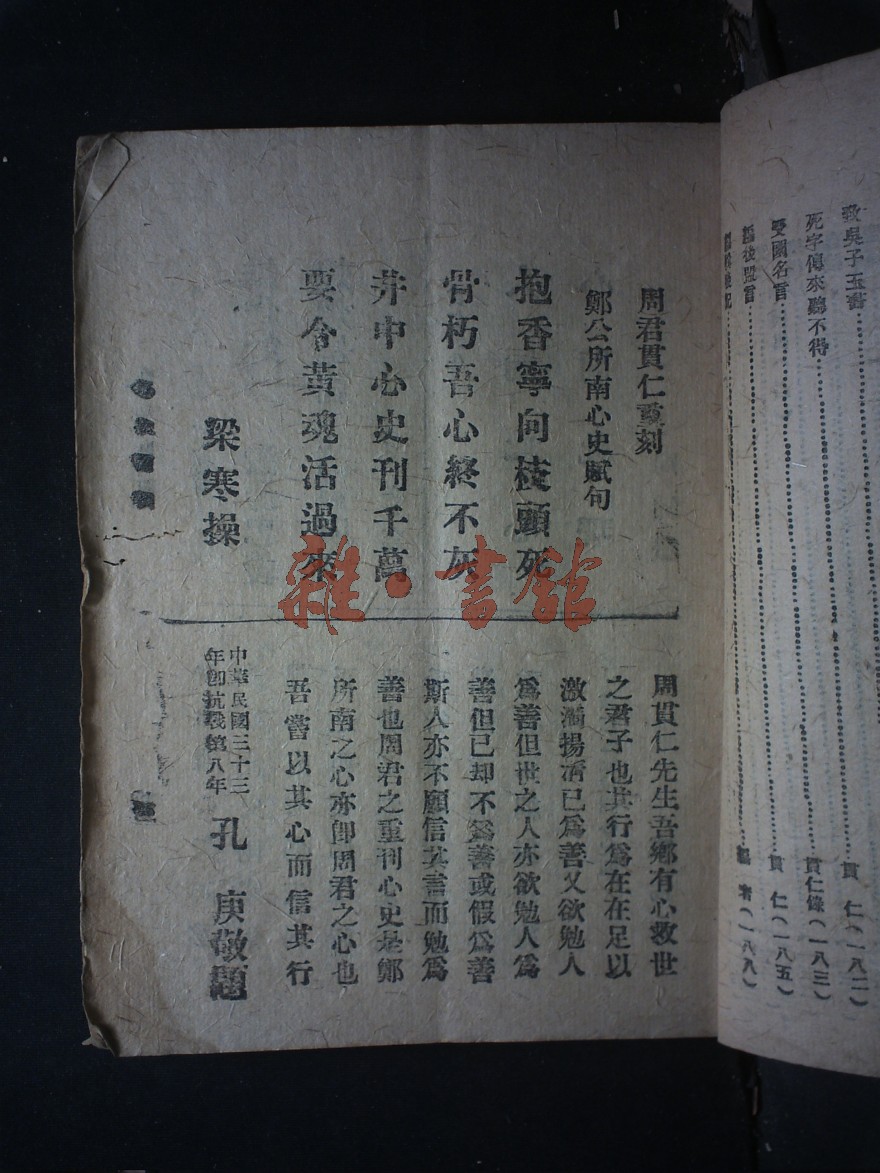 致吳子玉書……貫 仁（一八二）
死字傳來聽不得……貫仁錄（一八三）
愛國名言……貫 仁（一八五）
編者（一八八）
周君貫仁重刻
鄭公所南心史賦句
抱香寧向枝頭死
骨朽吾心終不灰
井中心史刊千萬
要令黃魂活過來
梁寒操
周貫仁先生吾鄉有心救世
之君子也其行爲在在足以
激濁揚清已爲善又欲勉人
爲善但世之人亦欲勉人爲
善但已却不爲善或假爲善
斯人亦不願信其言而勉爲
善也周君之重刊心史是鄭
所南之心亦卽周君之心也
吾當以其心而信其行
中華民國三十三
年卽抗戰第八年
孔 庚敬題
雜·書館